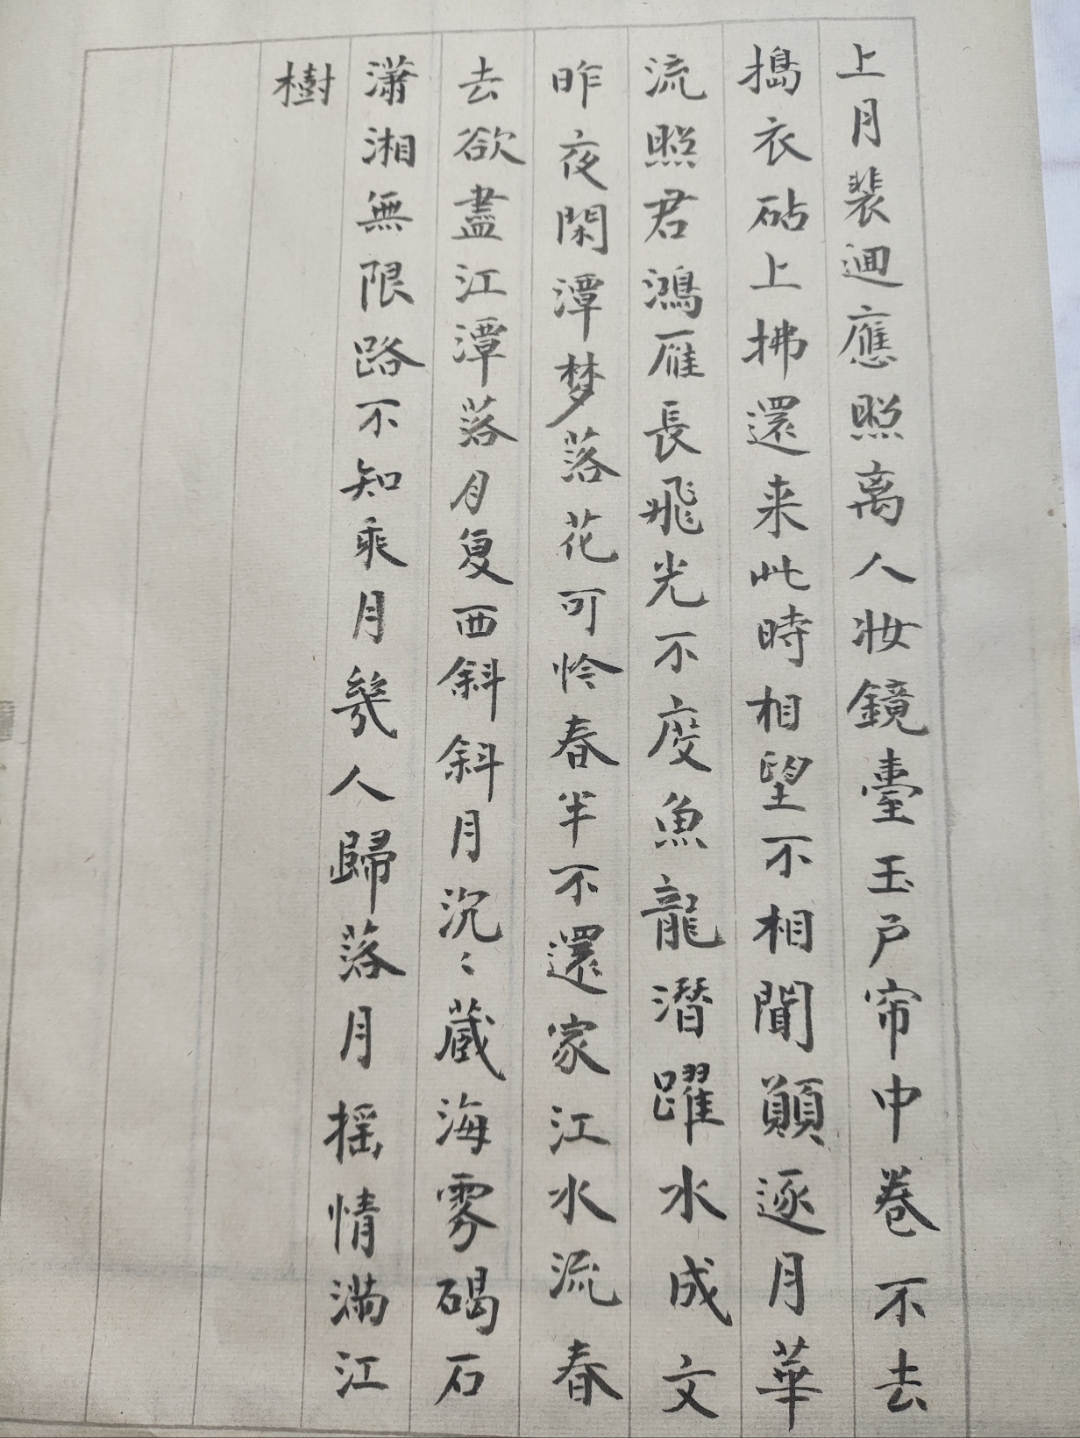 上月裴迴應照离人妝鏡臺玉户帘中卷不去
搗衣砧上拂還来此時相望不相聞願逐月華
流照君鴻雁長飛光不度魚龍潜躍水成文
昨夜閑潭梦落花可怜春半不還家江水流春
去欲盡江潭落月复西斜斜月沉〻蔵海雾碣石
瀟湘無限路不知乘月幾人歸落月摇情満江
樹